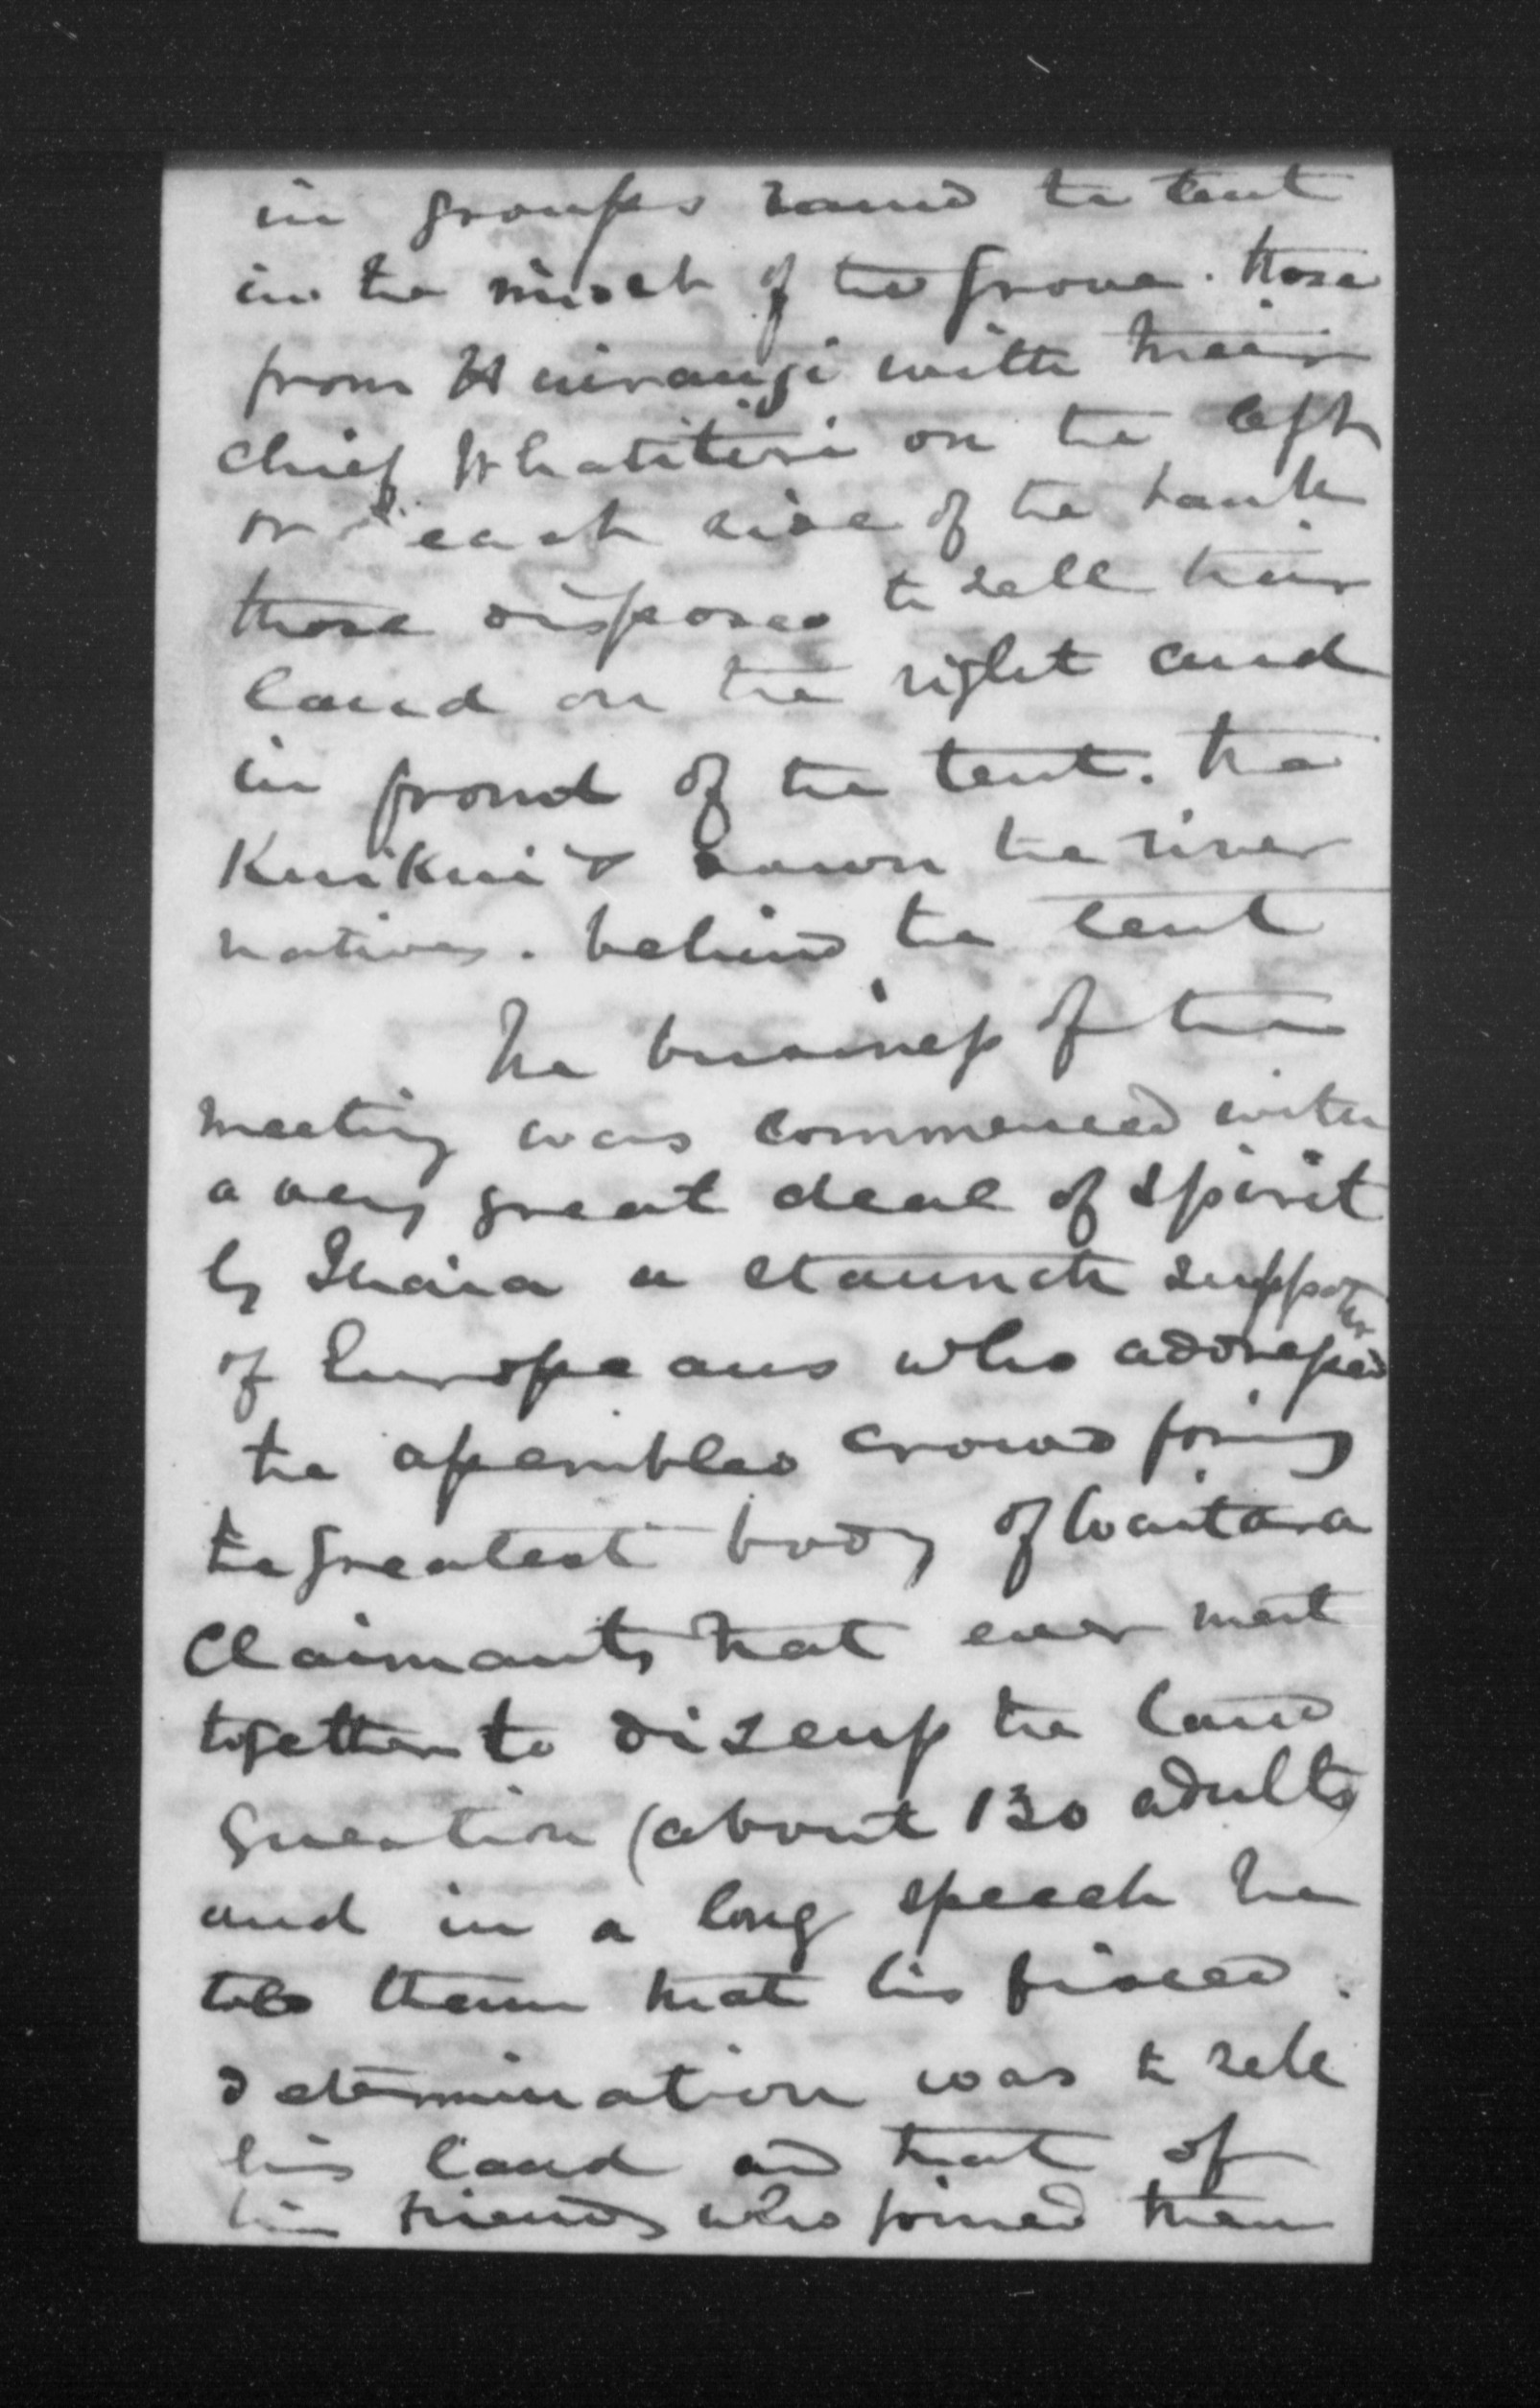 in groups round the tent
in the midst of the grove. those
from Huirangi with their
chief Whatitiri on the left
on each side of the bank
those disposed to sell their
land on the right and
in front of the tent. the
Kuikui & down the river
natives. behind the tent
The business of the
meeting was commenced with
a very great deal of spirit
by Ihaia a staunch supporter
of Europeans who addressed
the assembled crowd forming
the greatest body of Waitara
Claimants that ever meet
together to discuss the land
question (about 130 adults)
and in a long speech he
told them that his fixed
determination was to sell
his land and that of
his friends who joined them